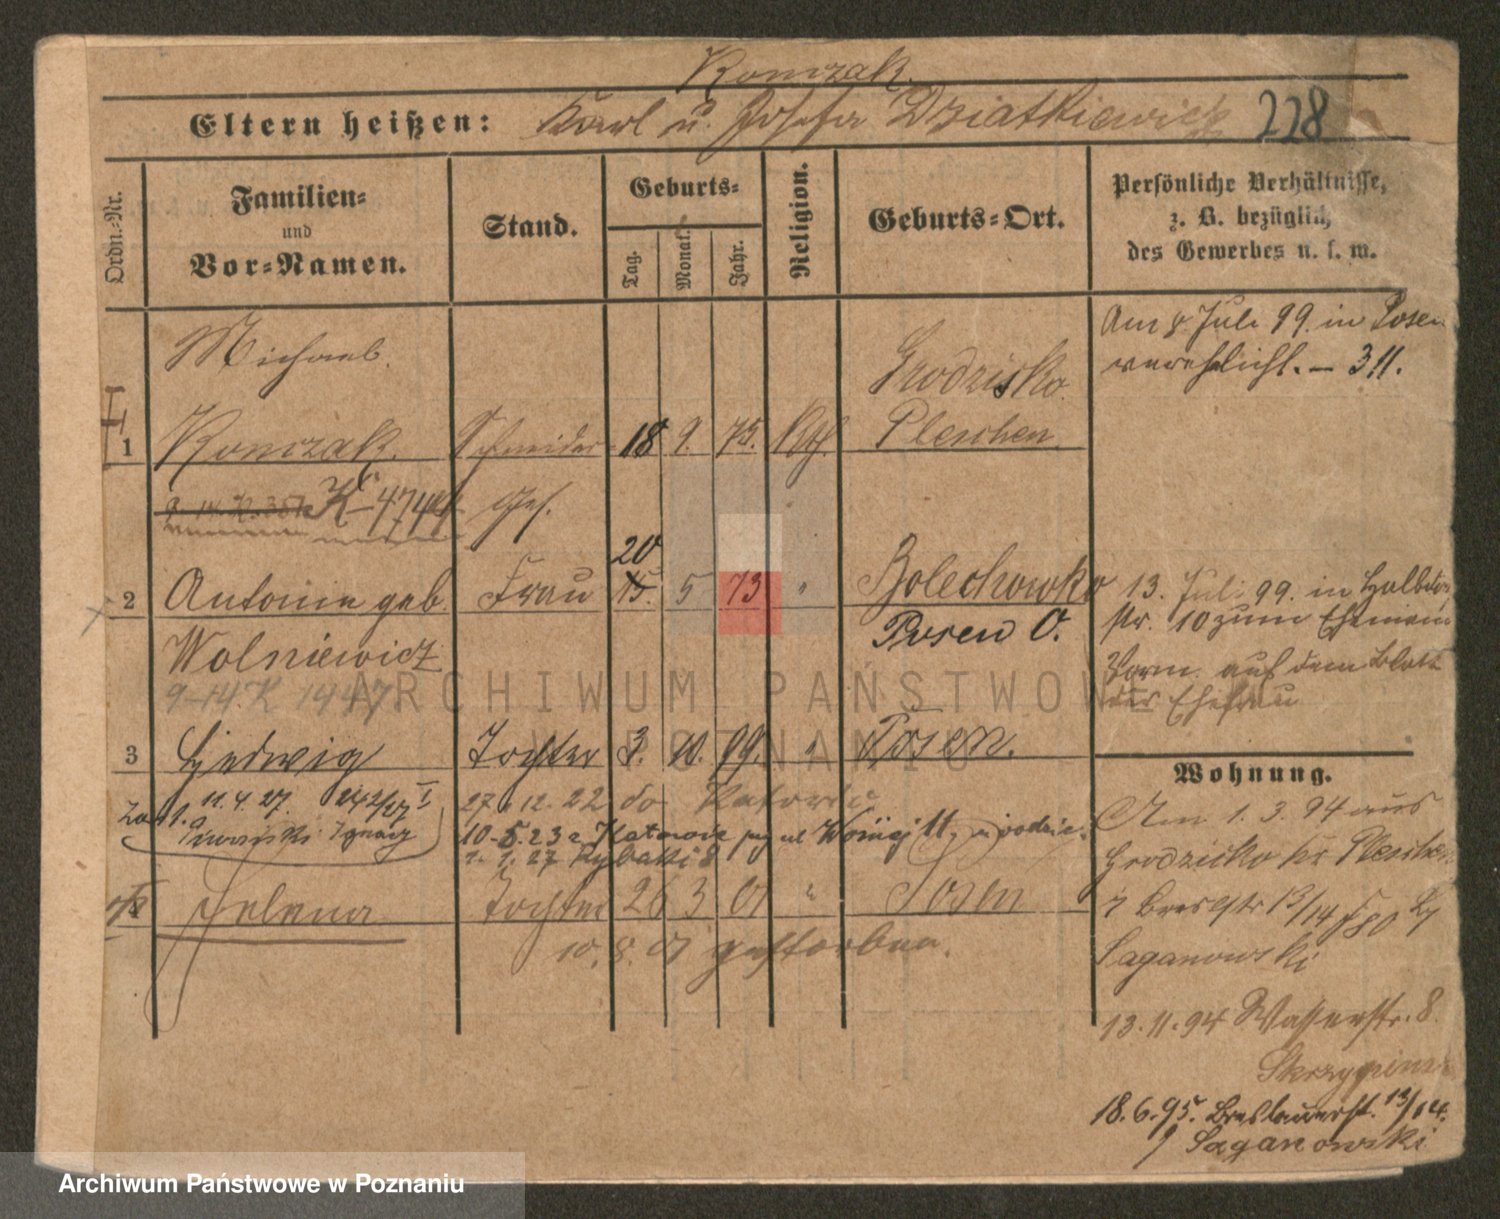 Romczak.
Eltern heißen: Karl u. Josefa Dziatkiewicz 228
Ordn.-Nr.
Familien- und Vor-Namen.
Stand.
Geburts-
Tag. Monat. Jahr.
Religion.
Geburts-Ort.
Persönliche Verhältnisse,
z. B. bezüglich
des Gewerbes u. s. w.
Michael
Grodzisko
1 Romczak. Schneider 18 9. 75. Kth. Pleschen
K-4744 Ges.
Am 8 Juli 99. in Posen
verehelicht. – 311.
20
2 Antonie geb. Frau 15. 5 73 " Bolechowko
Wolniewicz Posen O.
9-14 K 1447
13. Juli 99. in Halbdorf
str. 10 zum Ehemann
Vorm. auf dem Blatt
der Ehefrau
3 Hedwig Tochter 3. 10. 99. " Posen.
11.4.27. 242/27 I
Ignacy
27.12.22 do Katowic
10-5.23 z Katowic ul
1. 1. 27 Rybaki 8
4 Helena Tochter 26 3 01 " Posen
10. 8. 01 gestorben.
Wohnung.
Am 1. 3. 94 aus
Grodzisko Kr. Pleschen
13/14
Saganowski
13.11.94 Wasserstr. 8.
18.6.95. Breslauerst. 13/14.
Saganowski
ARCHIWUM PAŃSTWOWE
W POZNANIU
Archiwum Państwowe w Poznaniu